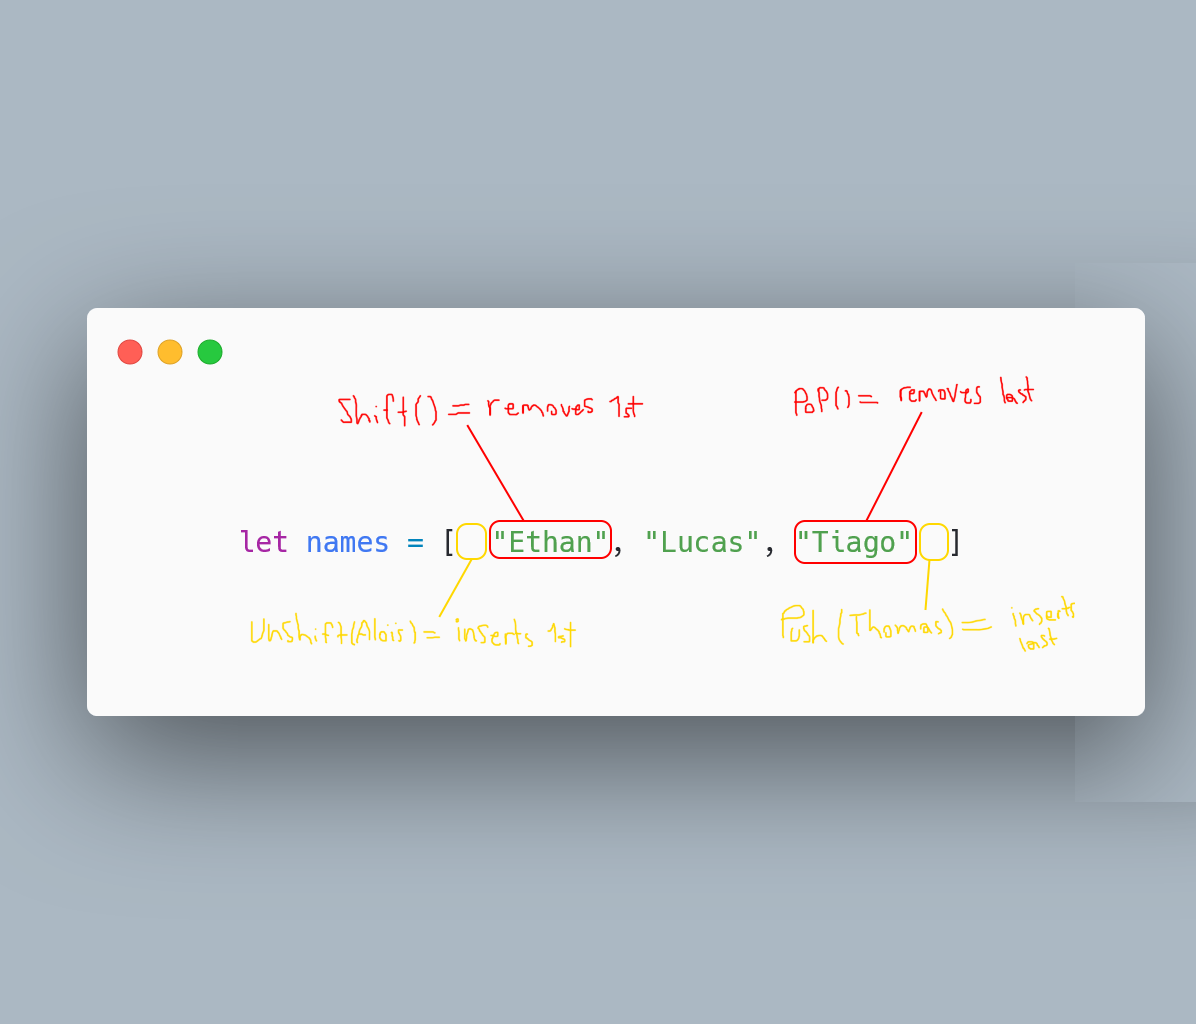 Shift() = removes 1st
PoP() = removes last
let names = [ "Ethan", "Lucas", "Tiago" ]
Unshift(Alois) = inserts 1st
Push (Thomas) = inserts
last